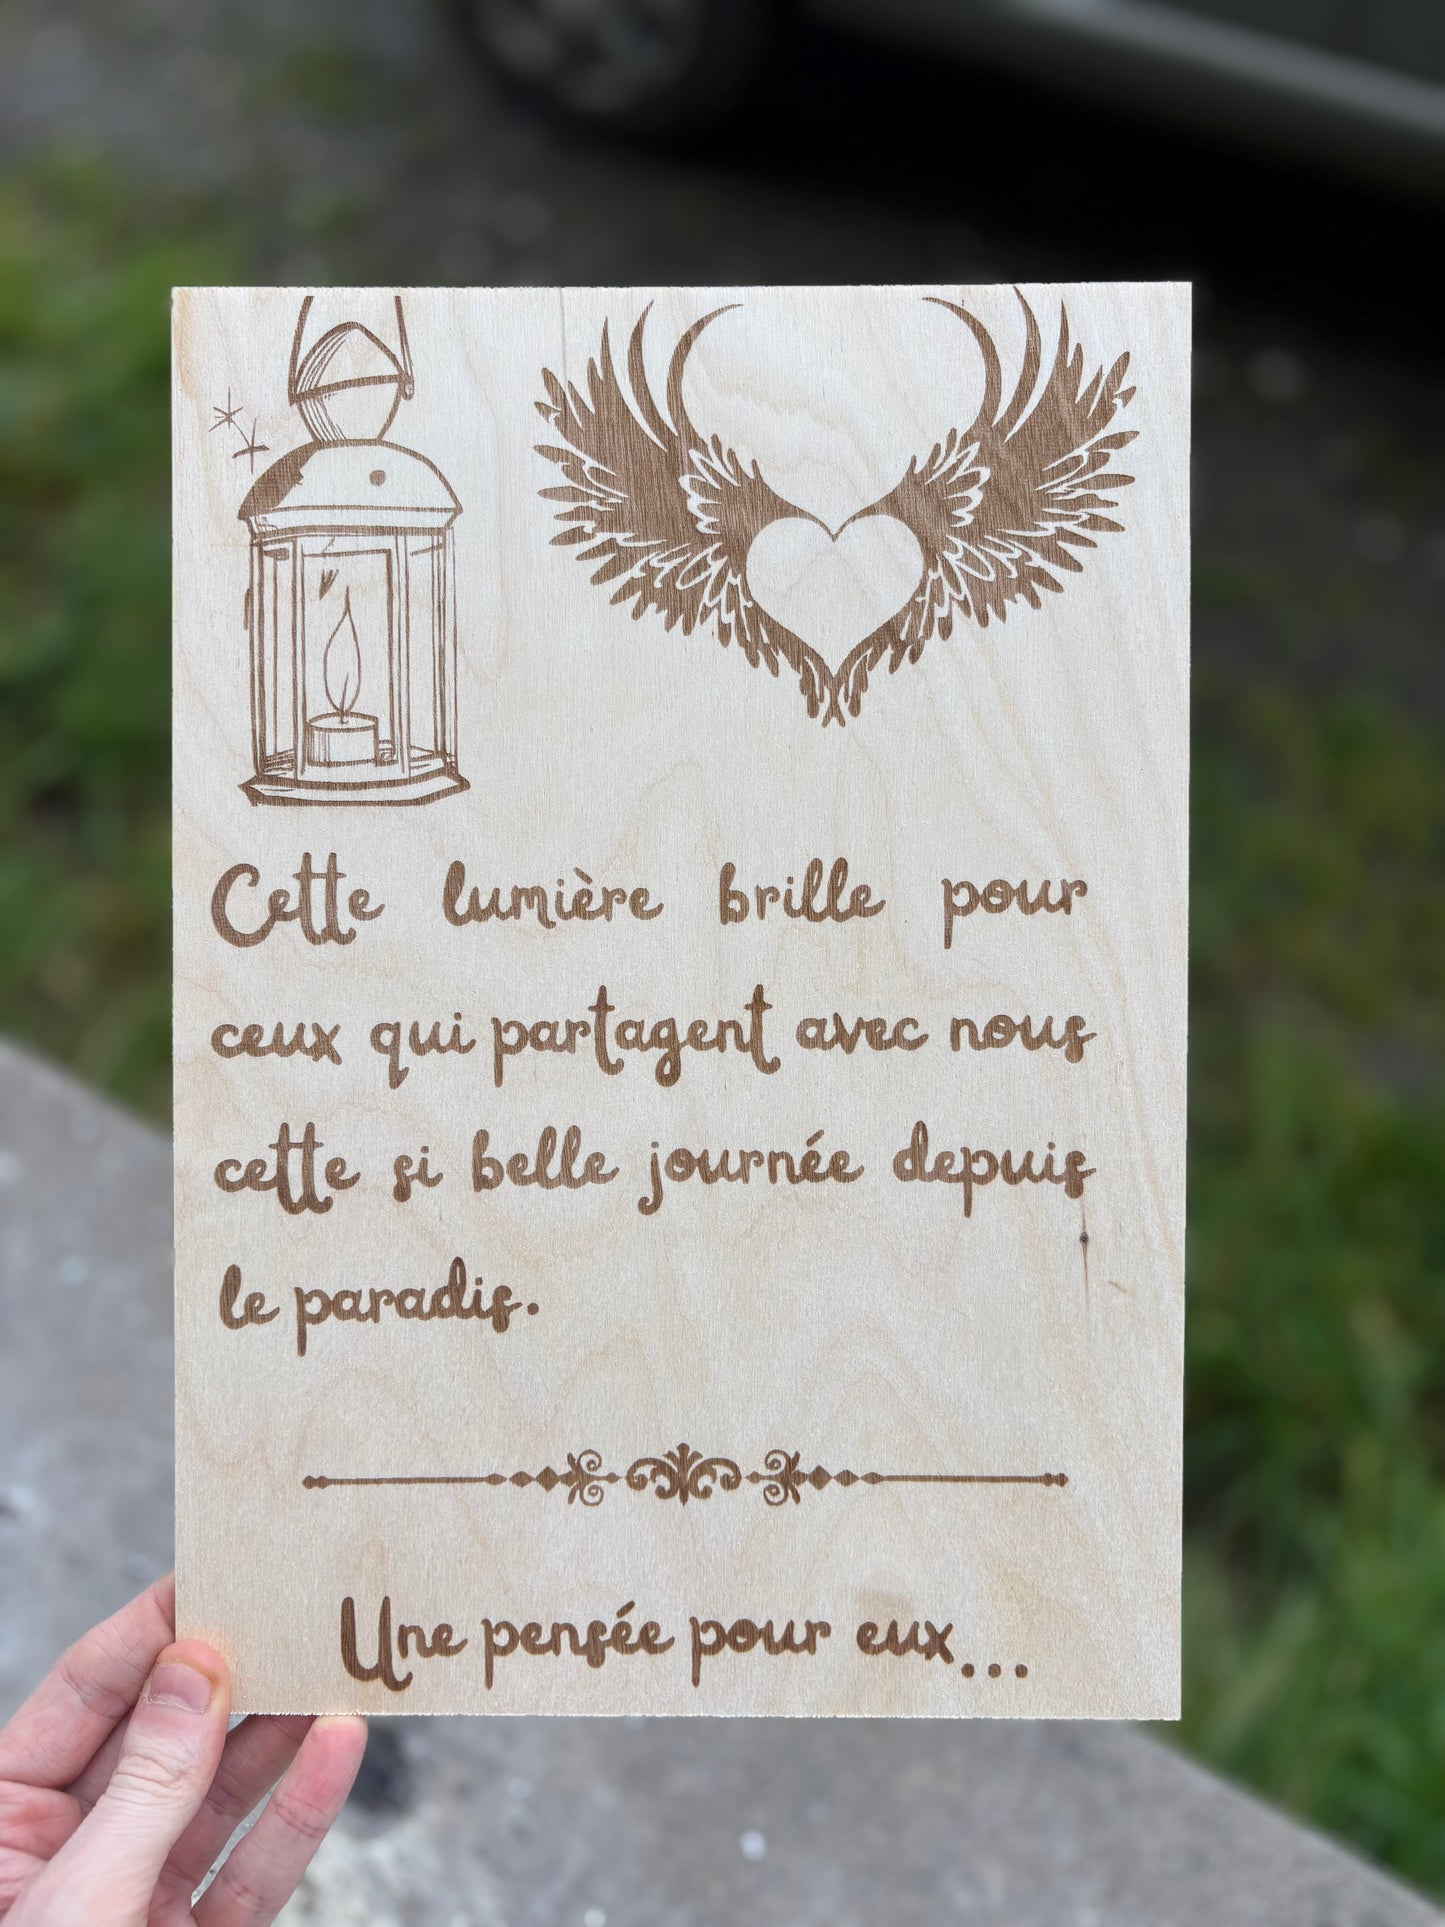 Cette lumière brille pour
ceux qui partagent avec nous
cette si belle journée depuis
le paradis.
Une pensée pour eux...